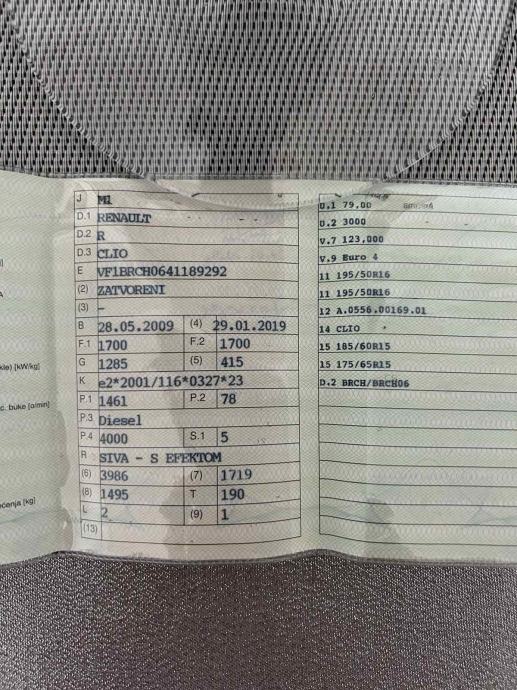 J M1
D.1 RENAULT
D.2 R
D.3 CLIO
E VF1BRCH0641189292
(2) ZATVORENI
(3) -
B 28.05.2009 (4) 29.01.2019
F.1 1700 F.2 1700
G 1285 (5) 415
K e2*2001/116*0327*23
P.1 1461 P.2 78
P.3 Diesel
P.4 4000 S.1 5
R SIVA - S EFEKTOM
(6) 3986 (7) 1719
(8) 1495 T 190
L 2 (9) 1
(13)
U.1 79,00
U.2 3000
V.7 123,000
V.9 Euro 4
11 195/50R16
11 195/50R16
12 A.0556.00169.01
14 CLIO
15 185/60R15
15 175/65R15
D.2 BRCH/BRCH06
[kW/kg]
buke [o/min]
[kg]